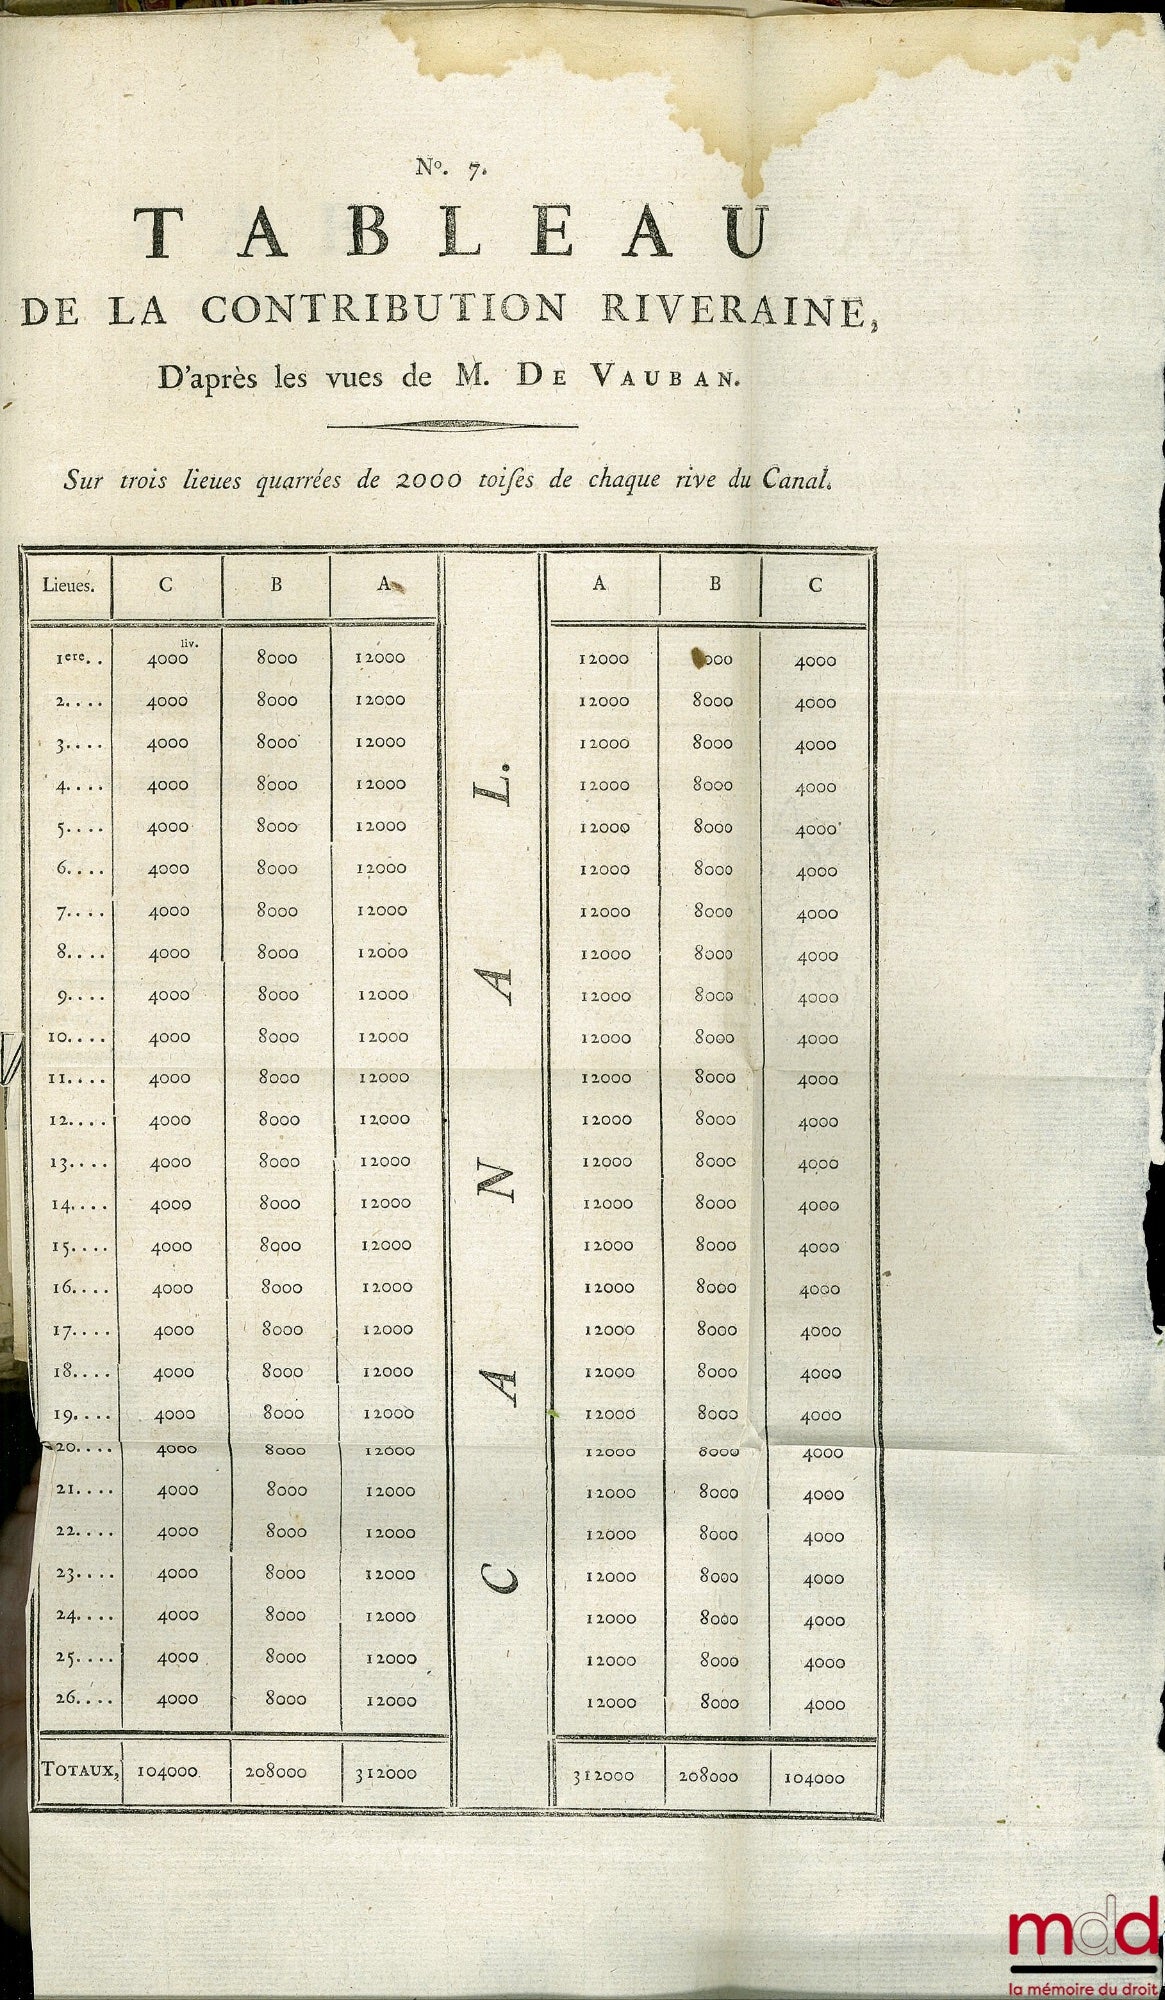 Nº. 7.
TABLEAU
DE LA CONTRIBUTION RIVERAINE,
D'après les vues de M. DE VAUBAN.
Sur trois lieues quarrées de 2000 toiſes de chaque rive du Canal.
Lieues. C B A A B C
liv.
1ere.. 4000 8000 12000 12000 000 4000
2.... 4000 8000 12000 12000 8000 4000
3.... 4000 8000 12000 12000 8000 4000
4.... 4000 8000 12000 12000 8000 4000
5.... 4000 8000 12000 12000 8000 4000
6.... 4000 8000 12000 12000 8000 4000
7.... 4000 8000 12000 12000 8000 4000
8.... 4000 8000 12000 12000 8000 4000
9.... 4000 8000 12000 12000 8000 4000
10.... 4000 8000 12000 12000 8000 4000
11.... 4000 8000 12000 12000 8000 4000
12.... 4000 8000 12000 12000 8000 4000
13.... 4000 8000 12000 12000 8000 4000
14.... 4000 8000 12000 12000 8000 4000
15.... 4000 8000 12000 12000 8000 4000
16.... 4000 8000 12000 12000 8000 4000
17.... 4000 8000 12000 12000 8000 4000
18.... 4000 8000 12000 12000 8000 4000
19.... 4000 8000 12000 12000 8000 4000
20.... 4000 8000 12000 12000 8000 4000
21.... 4000 8000 12000 12000 8000 4000
22.... 4000 8000 12000 12000 8000 4000
23.... 4000 8000 12000 12000 8000 4000
24.... 4000 8000 12000 12000 8000 4000
25.... 4000 8000 12000 12000 8000 4000
26.... 4000 8000 12000 12000 8000 4000
TOTAUX, 104000 208000 312000 312000 208000 104000
CANAL.
mdd
la mémoire du droit